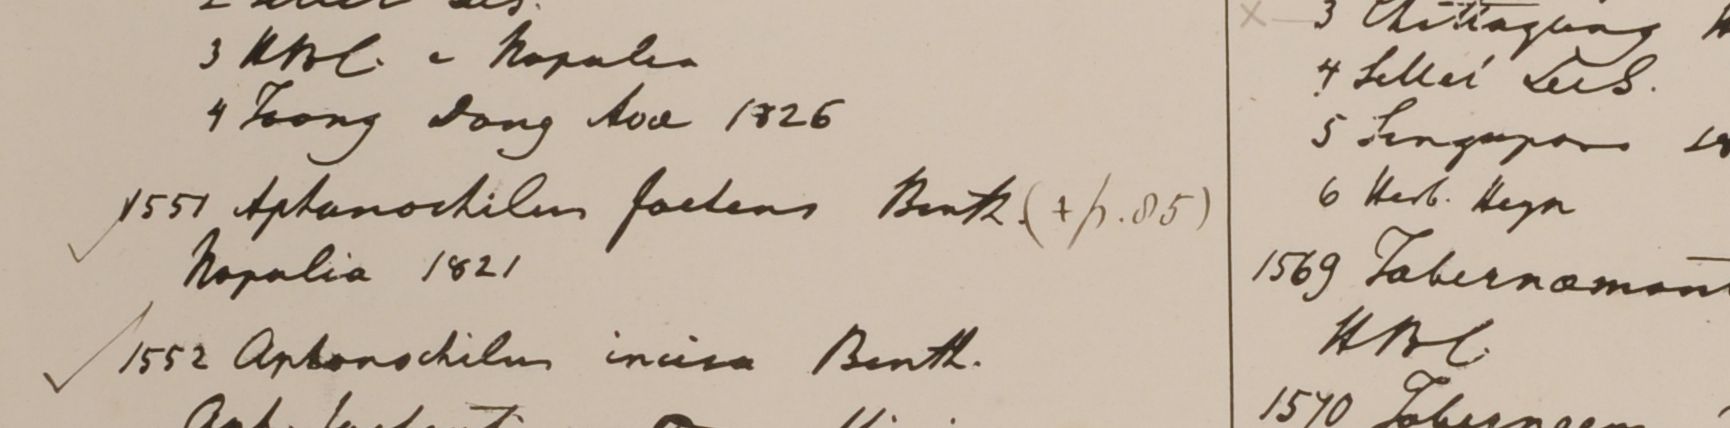 3 HBC. e Napalia
4 Toong Dong Ava 1826
1551 Aphanochilus foetens Benth. (+ p. 85)
Napalia 1821
1552 Aphanochilus incisa Benth.
3 Chittagong
4 Sillet
5 Singapore
6 Herb. Heyn
1569 Tabernæmont
HBC.
1570